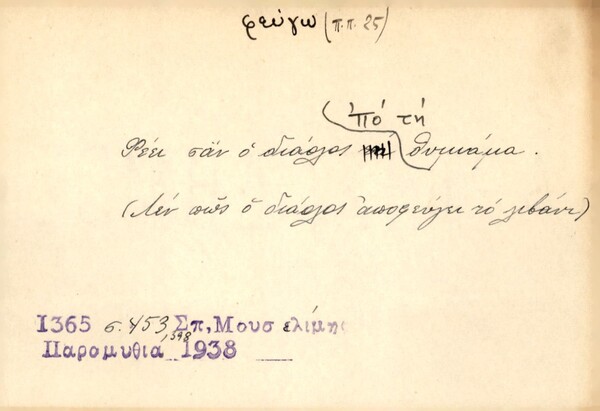 φεύγω (π.π. 25)
'πό τή
Φέει σάν ὁ διάολος θυμιάμα.
(Λέν πῶς ὁ διάολος ἀποφεύγει τό λιβάνι)
1365 σ. 453, Σπ, Μουσελίμης
1398
Παρομυθια 1938